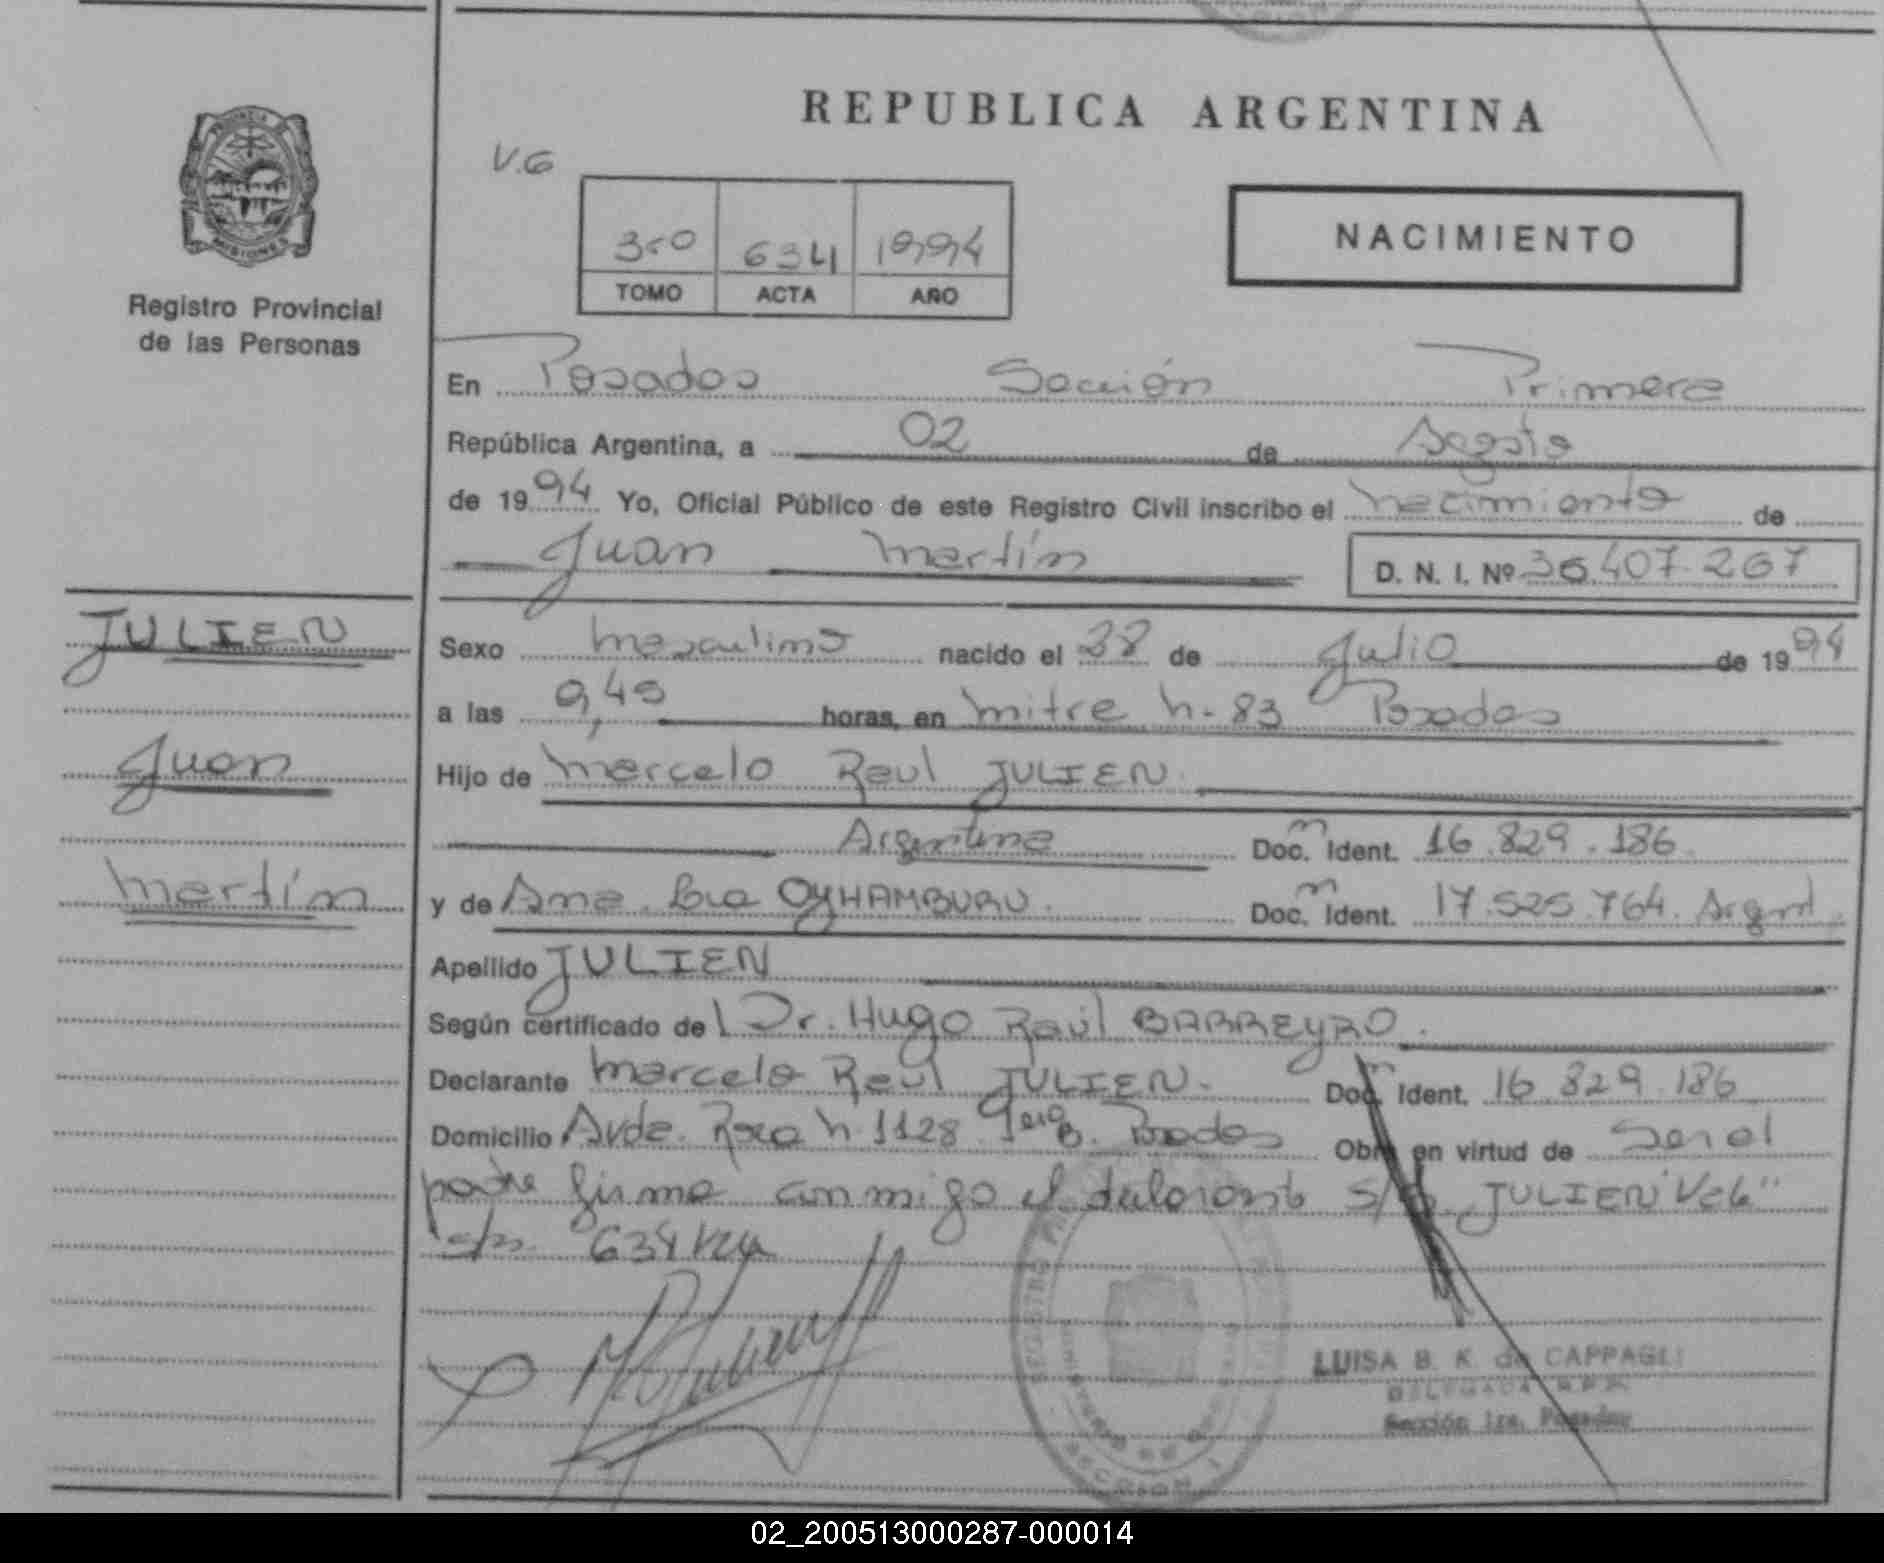 REPUBLICA ARGENTINA
V.G
PROVINCIA
MISIONES
Registro Provincial
de las Personas
634 1994
TOMO ACTA AÑO
NACIMIENTO
En Posadas Sección Primera
República Argentina, a 02 de Agosto
de 1994 Yo, Oficial Público de este Registro Civil inscribo el nacimiento de
Juan Martín D. N. I. Nº 407.267
JULIEN
Juan
Martín
Sexo Masculino nacido el de Julio de 1994
a las horas, en Mitre n- 83 Posadas
Hijo de Marcelo Raúl JULIEN.
Argentino Doc. Ident. 16.829.186
y de Ana OYHAMBURU. Doc. Ident. 17.525.764. Argent.
Apellido JULIEN
Según certificado del Dr. Hugo Raúl BARREYRO.
Declarante Marcelo Raúl JULIEN. Doc. Ident. 16.829.186
Domicilio Avda. Roca n. 1128 Posadas Obra en virtud de Ser el
padre firma conmigo el declarante JULIEN "Vale"
634
LUISA B. K. de CAPPAGLI
DELEGADA R.P.P.
Sección 1ra. Posadas
SECCION 1
02_200513000287-000014